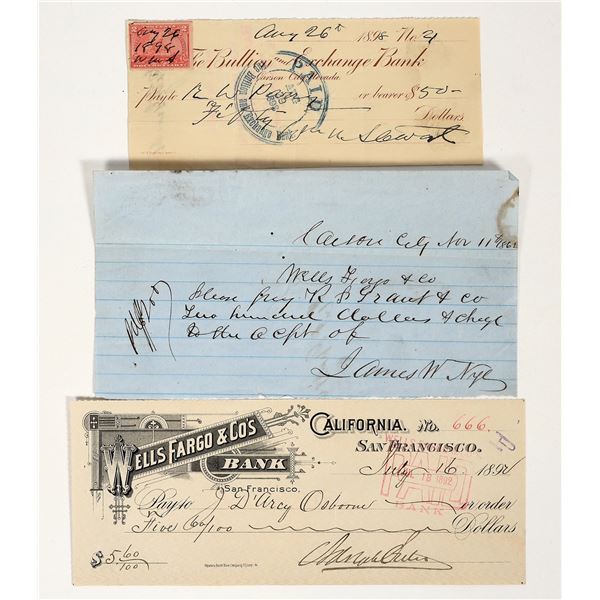 Aug 26th 1898 No. 21
Aug 26
1898
W M S
The Bullion and Exchange Bank
Carson City, Nevada.
PAID
Pay to R. W. or bearer $50-
Fifty Dollars
Wm M Stewart
Carson City Nov 11th 186
Wells Fargo & Co
Please pay & co
Two hundred dollars & chg
to the acpt of
James W Nye
WELLS FARGO & CO'S
BANK
San Francisco.
CALIFORNIA. No. 666.
SAN FRANCISCO.
July 16 1892
WELLS
PAID
JUL 18 1892
BANK
Pay to J D'Arcy Osborne or order
Five 60/100 Dollars
$5.60/100